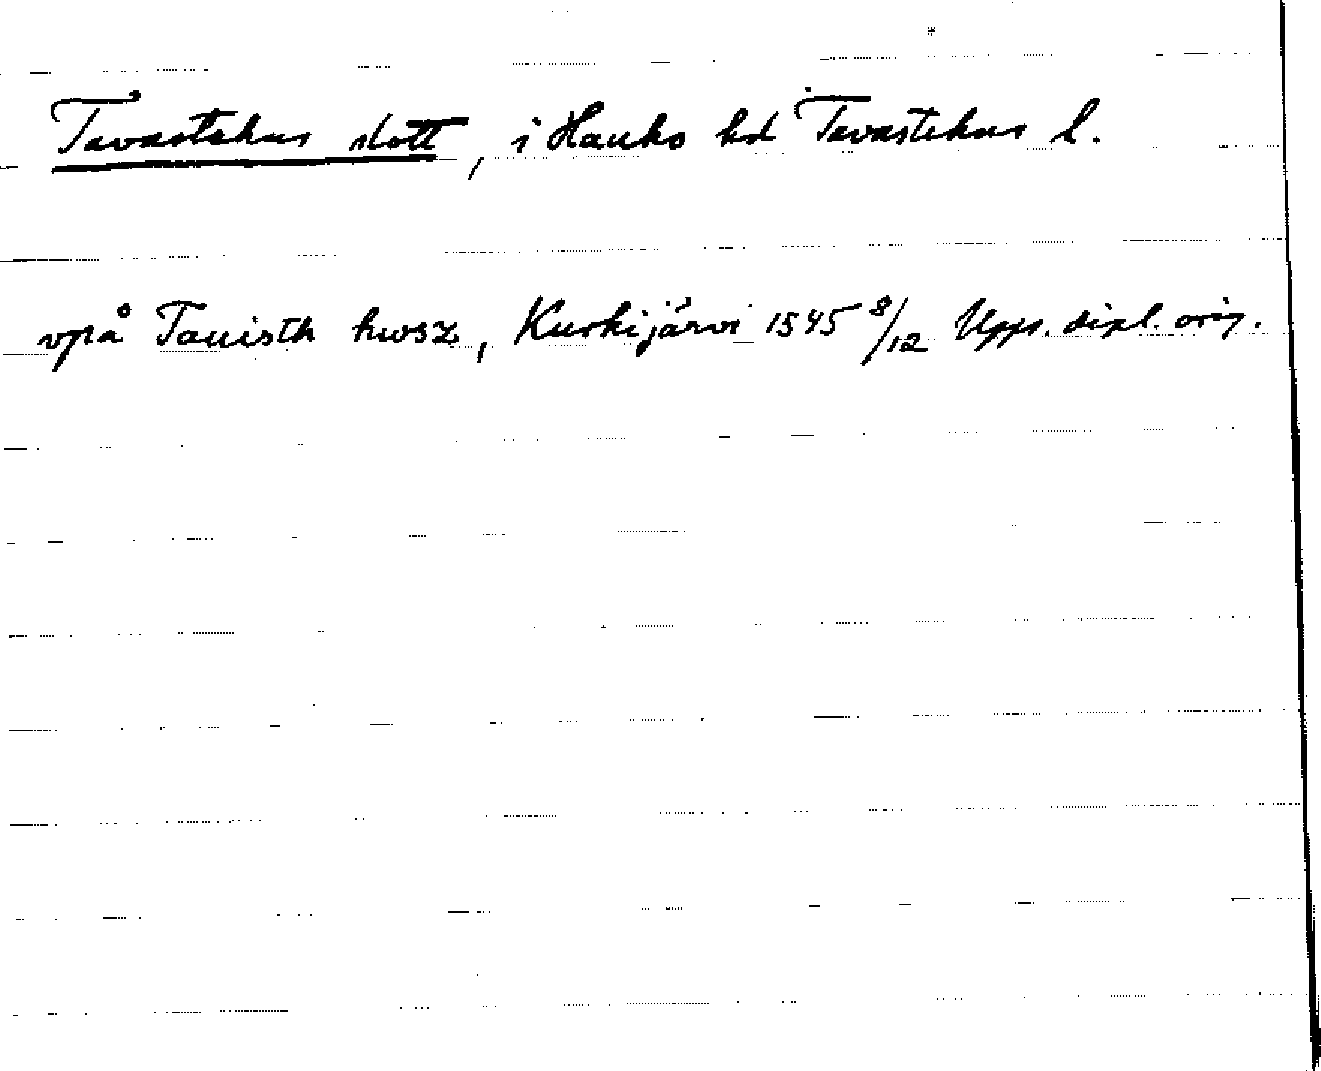 Tavastehus slott, i Hauho hd Tavastehus l.
vpå Tauisth hwsz, Kurkijärvi 1545 8/12 Upps. dipl. orig.